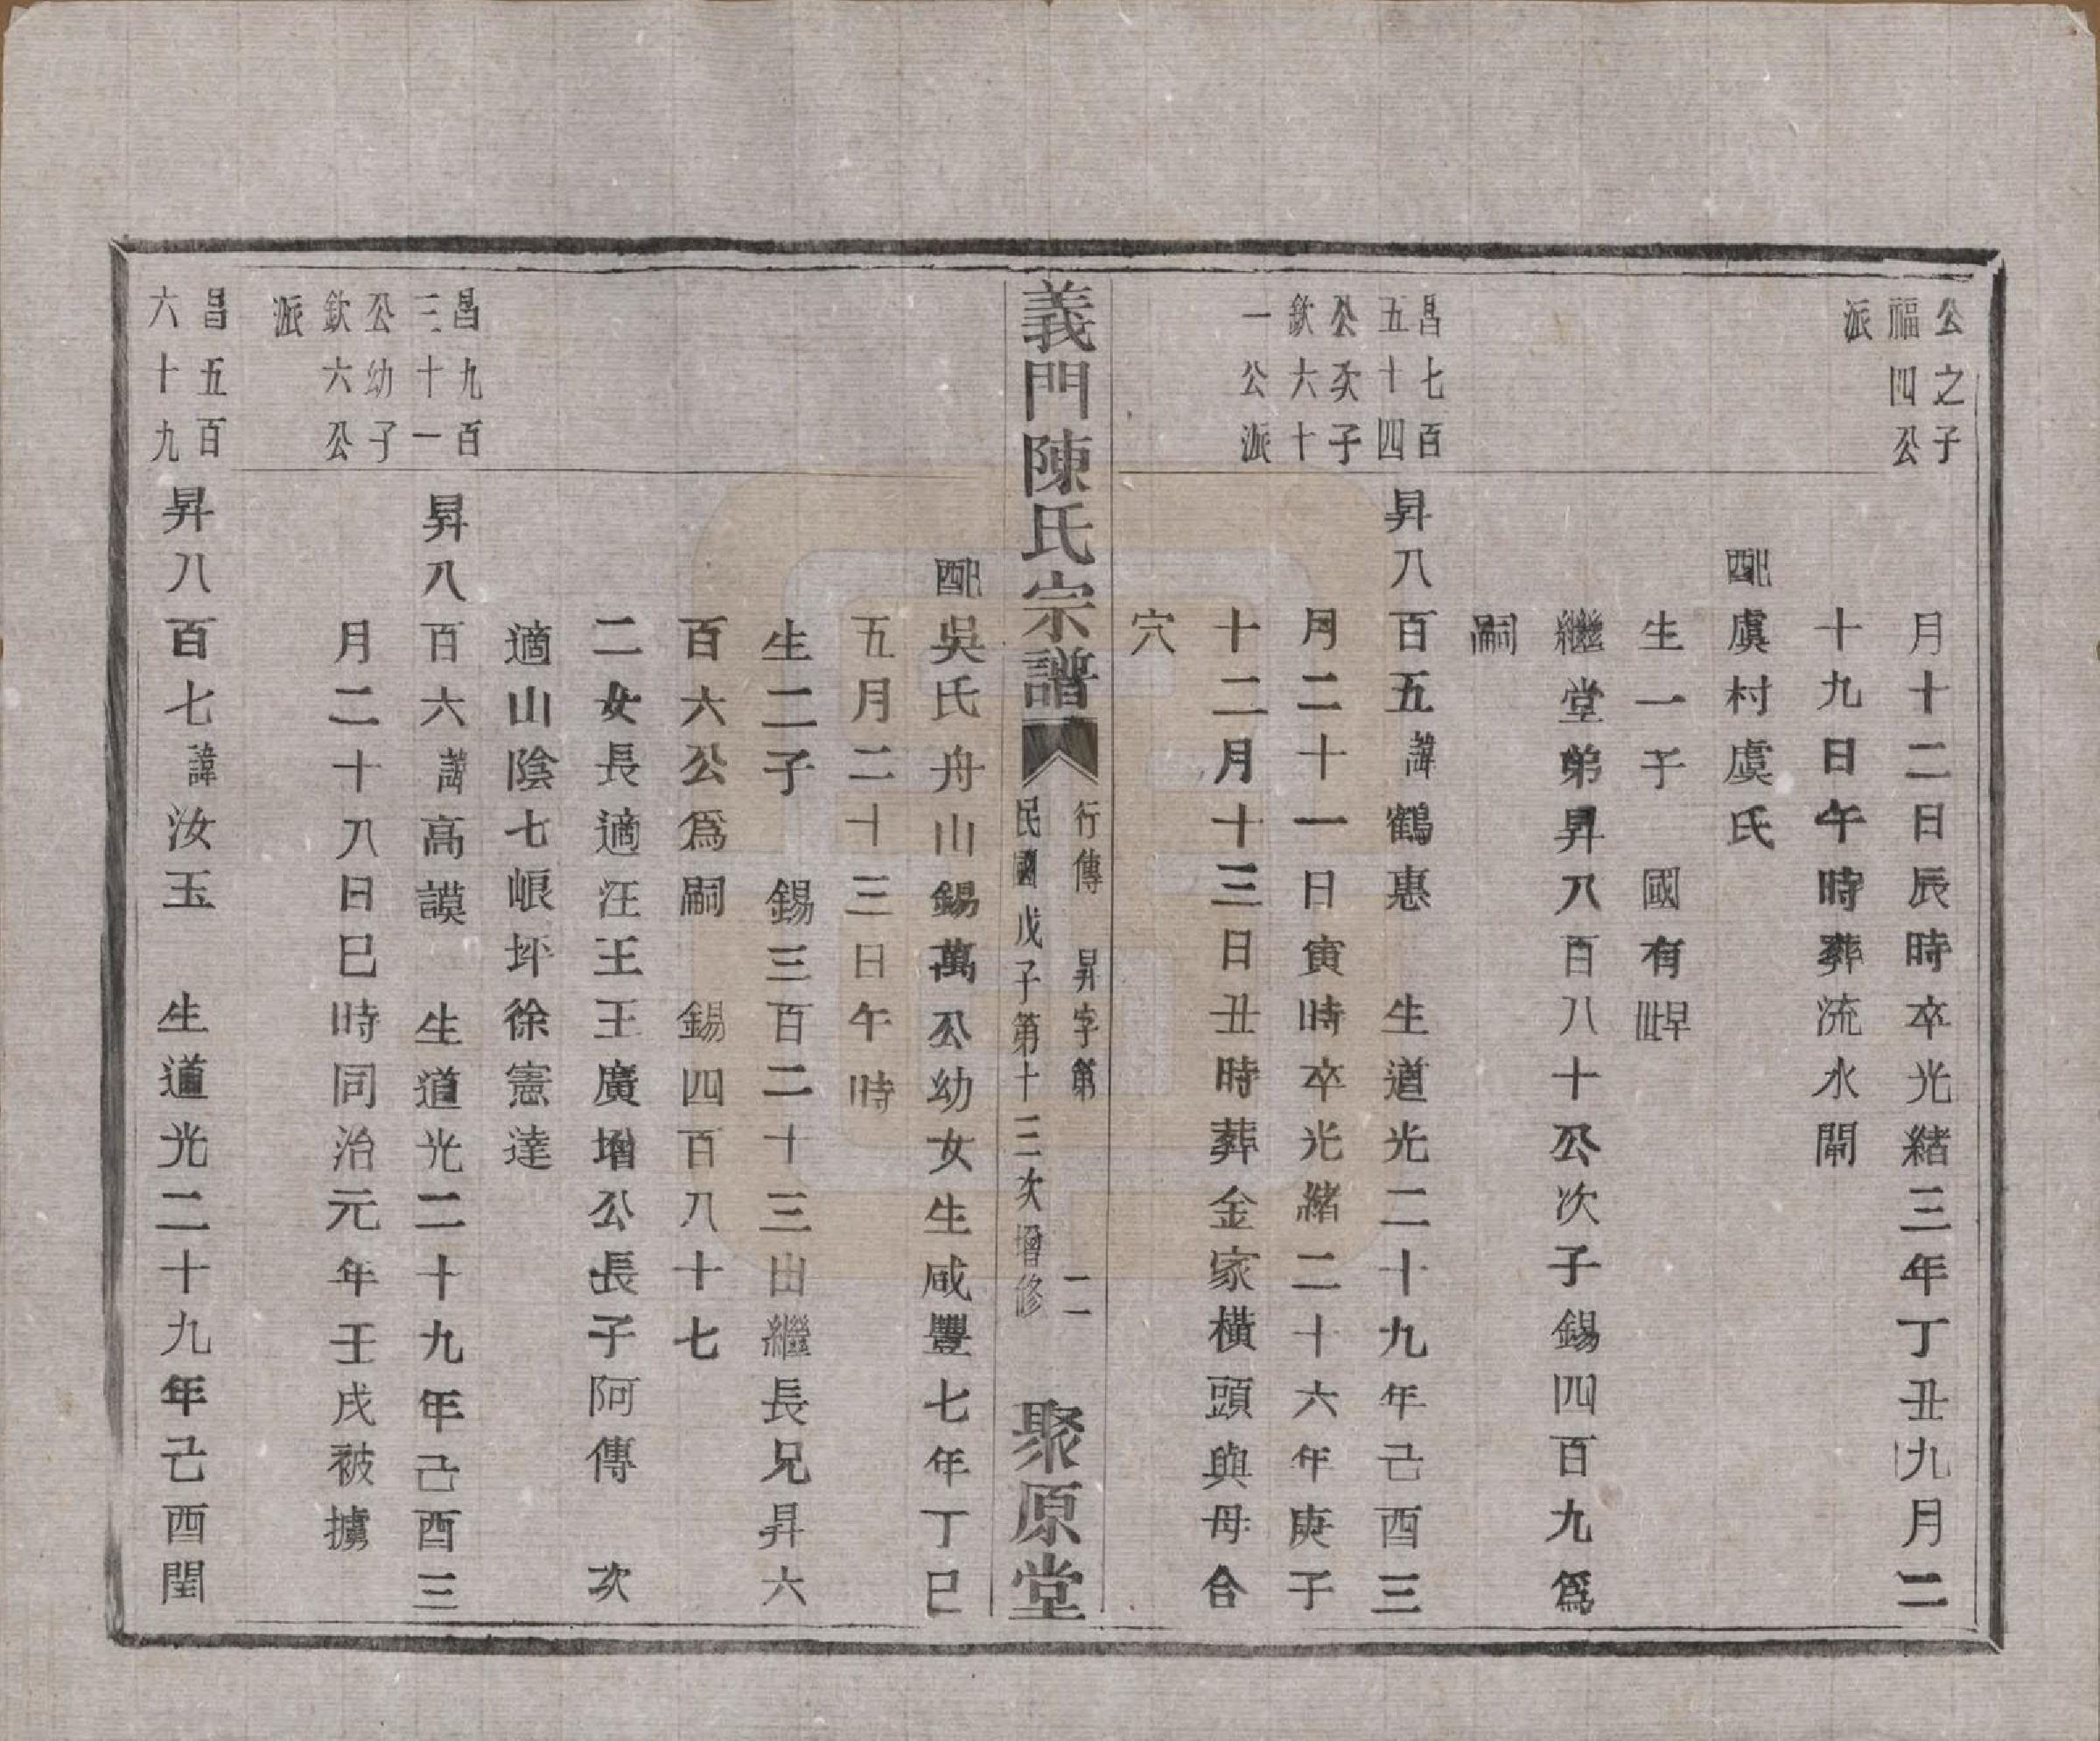 公之子
福四公
派
月十二日辰時卒光緒三年丁丑九月二
十九日午時葬流水閘
配虞村虞氏
生一子　國有
繼堂弟昇八百八十公次子錫四百九爲
嗣
昌七百
五十四
公次子
欽六十
一公派
昇八百五諱鶴惠　生道光二十九年己酉三
月二十一日寅時卒光緒二十六年庚子
十二月十三日丑時葬金家橫頭與母合
穴
義門陳氏宗譜
行傳　昇字第　二
民國戊子第十三次增修
聚原堂
配吳氏舟山錫萬公幼女生咸豐七年丁巳
五月二十三日午時
生二子　錫三百二十三出繼長兄昇六
百六公爲嗣　錫四百八十七
二女長適汪王王廣增公長子阿傳　次
適山陰七峎坏徐憲達
昌九百
三十一
公幼子
欽六公
派
昇八百六諱高謨　生道光二十九年己酉三
月二十八日巳時同治元年壬戌被擄
昌五百
六十九
昇八百七諱汝玉　生道光二十九年己酉閏